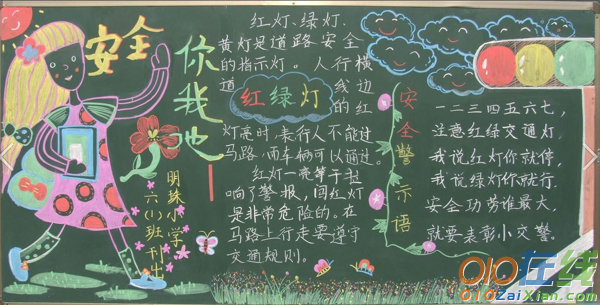 安全
你我他
明珠小学
六(1)班刊出
红灯、绿灯、
黄灯是道路安全
的指示灯。人行横
道
线边
的红
红绿灯
灯亮时,表行人不能过
马路,而车辆可以通过。
红灯一亮等于
响了警报,闯红灯
是非常危险的。在
马路上行走要遵守
交通规则。
安全警示语
一二三四五六七,
注意红绿交通灯。
我说红灯你就停,
我说绿灯你就行。
安全功劳谁最大,
就要表彰小交警。
010在线
010ZaiXian.com